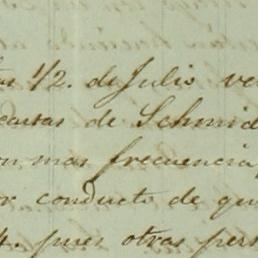 1/2. de Julio ve
cartas de Schmid
on mas frecuencia,
or conducto de qu
4. pues otras pers